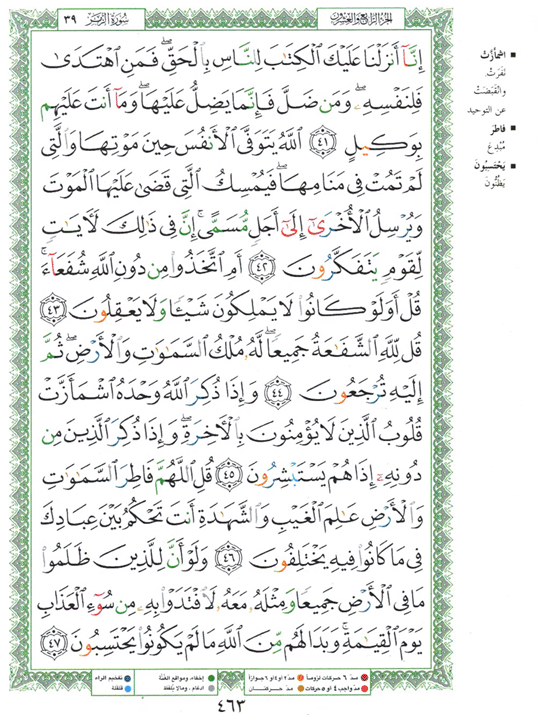 سورة الزمر ٣٩
الجزء الرابع والعشرون
إِنَّآ أَنزَلْنَا عَلَيْكَ ٱلْكِتَٰبَ لِلنَّاسِ بِٱلْحَقِّ ۖ فَمَنِ ٱهْتَدَىٰ
فَلِنَفْسِهِۦ ۖ وَمَن ضَلَّ فَإِنَّمَا يَضِلُّ عَلَيْهَا ۖ وَمَآ أَنتَ عَلَيْهِم
بِوَكِيلٍ ٤١ ٱللَّهُ يَتَوَفَّى ٱلْأَنفُسَ حِينَ مَوْتِهَا وَٱلَّتِى
لَمْ تَمُتْ فِى مَنَامِهَا ۖ فَيُمْسِكُ ٱلَّتِى قَضَىٰ عَلَيْهَا ٱلْمَوْتَ
وَيُرْسِلُ ٱلْأُخْرَىٰٓ إِلَىٰٓ أَجَلٍ مُّسَمًّى ۚ إِنَّ فِى ذَٰلِكَ لَءَايَٰتٍ
لِّقَوْمٍ يَتَفَكَّرُونَ ٤٢ أَمِ ٱتَّخَذُوا۟ مِن دُونِ ٱللَّهِ شُفَعَآءَ ۚ
قُلْ أَوَلَوْ كَانُوا۟ لَا يَمْلِكُونَ شَيْـًٔا وَلَا يَعْقِلُونَ ٤٣
قُل لِّلَّهِ ٱلشَّفَٰعَةُ جَمِيعًا ۖ لَّهُۥ مُلْكُ ٱلسَّمَٰوَٰتِ وَٱلْأَرْضِ ۖ ثُمَّ
إِلَيْهِ تُرْجَعُونَ ٤٤ وَإِذَا ذُكِرَ ٱللَّهُ وَحْدَهُ ٱشْمَأَزَّتْ
قُلُوبُ ٱلَّذِينَ لَا يُؤْمِنُونَ بِٱلْءَاخِرَةِ ۖ وَإِذَا ذُكِرَ ٱلَّذِينَ مِن
دُونِهِۦٓ إِذَا هُمْ يَسْتَبْشِرُونَ ٤٥ قُلِ ٱللَّهُمَّ فَاطِرَ ٱلسَّمَٰوَٰتِ
وَٱلْأَرْضِ عَٰلِمَ ٱلْغَيْبِ وَٱلشَّهَٰدَةِ أَنتَ تَحْكُمُ بَيْنَ عِبَادِكَ
فِى مَا كَانُوا۟ فِيهِ يَخْتَلِفُونَ ٤٦ وَلَوْ أَنَّ لِلَّذِينَ ظَلَمُوا۟
مَا فِى ٱلْأَرْضِ جَمِيعًا وَمِثْلَهُۥ مَعَهُۥ لَٱفْتَدَوْا۟ بِهِۦ مِن سُوٓءِ ٱلْعَذَابِ
يَوْمَ ٱلْقِيَٰمَةِ ۚ وَبَدَا لَهُم مِّنَ ٱللَّهِ مَا لَمْ يَكُونُوا۟ يَحْتَسِبُونَ ٤٧
اشْمَأَزَّتْ
نَفَرَتْ
وانْقَبَضَتْ
عن التوحيد
فاطِرَ
مُبْدِعَ
يَحْتَسِبُونَ
يَظُنُّونَ
مدّ ٦ حركات لزوماً
مدّ ٢ أو ٤ أو ٦ جوازاً
إخفاء، ومواقع الغُنَّة
تفخيم الراء
مدّ واجب ٤ أو ٥ حركات
مدّ حركتان
إدغام، وما لا يُلفظ
قلقلة
٤٦٣